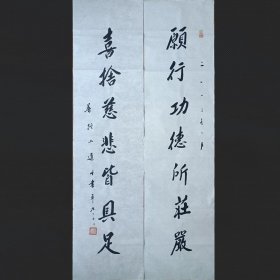 願行功德所莊嚴
喜捨慈悲皆具足